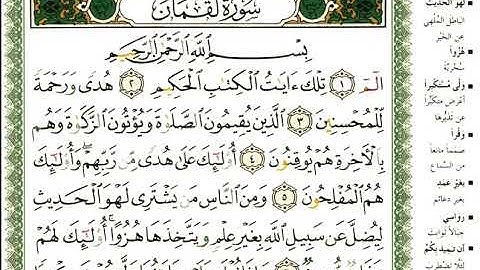 سُورَةُ لُقْمَان
بِسْمِ اللَّهِ الرَّحْمَٰنِ الرَّحِيمِ
الٓمٓ ١ تِلْكَ ءَايَٰتُ الْكِتَٰبِ الْحَكِيمِ ٢ هُدًى وَرَحْمَةً
لِّلْمُحْسِنِينَ ٣ الَّذِينَ يُقِيمُونَ الصَّلَوٰةَ وَيُؤْتُونَ الزَّكَوٰةَ وَهُم
بِالْءَاخِرَةِ هُمْ يُوقِنُونَ ٤ أُو۟لَٰٓئِكَ عَلَىٰ هُدًى مِّن رَّبِّهِمْ وَأُو۟لَٰٓئِكَ
هُمُ الْمُفْلِحُونَ ٥ وَمِنَ النَّاسِ مَن يَشْتَرِى لَهْوَ الْحَدِيثِ
لِيُضِلَّ عَن سَبِيلِ اللَّهِ بِغَيْرِ عِلْمٍ وَيَتَّخِذَهَا هُزُوًا أُو۟لَٰٓئِكَ لَهُمْ
لهو الحديث
الباطل الملهي
عن الخير
هزوا
سخرية
ولى مستكبرا
أعرض متكبرا
عن تدبرها
وقرا
صمما مانعا
من السماع
بغير عمد
بغير دعائم
رواسي
جبالا ثوابت
أن تميد بكم
لئلا تضطرب